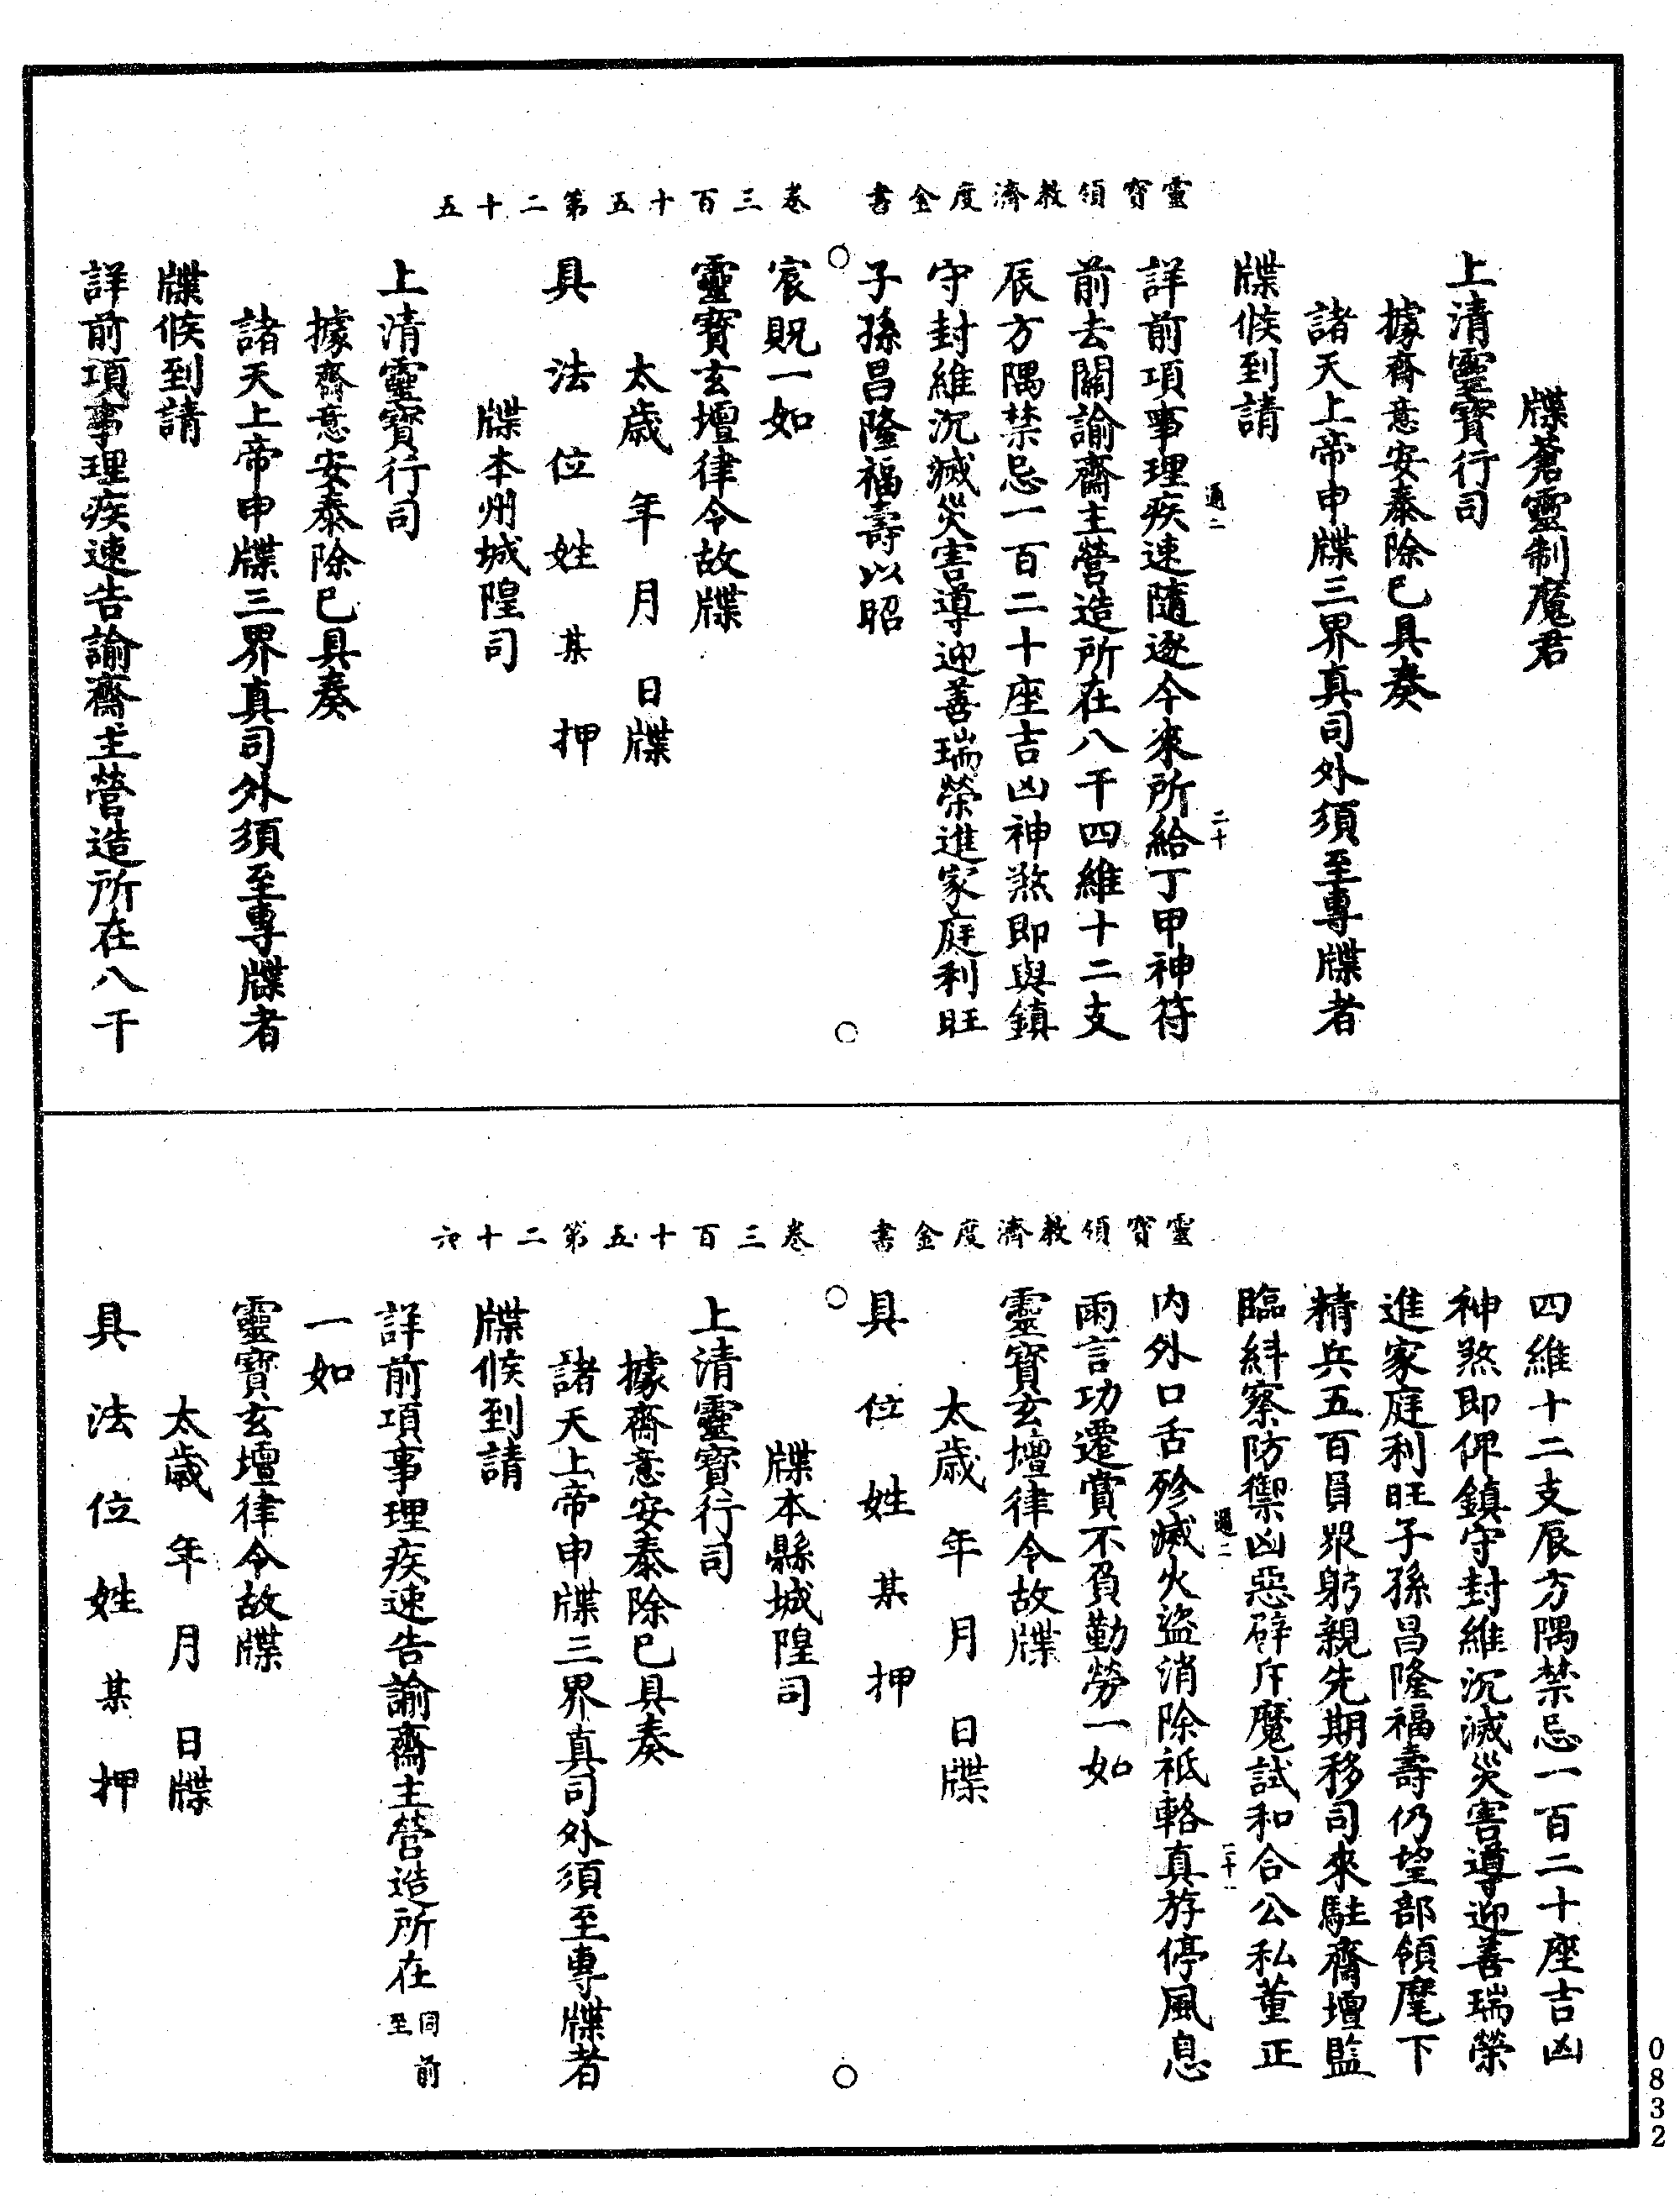 靈寶領教濟度金書　卷三百十五第二十五
牒蒼靈制魔君
上清靈寶行司
據齋意安泰除已具奏
諸天上帝申牒三界真司外須至專牒者
牒候到請
通二　二十
詳前項事理疾速隨逐今來所給丁甲神符
前去關諭齋主營造所在八干四維十二支
辰方隅禁忌一百二十座吉凶神煞即與鎮
守封維沉滅災害導迎善瑞榮進家庭利旺
子孫昌隆福壽以昭
宸貺一如
靈寶玄壇律令故牒
太歲　年　月　日牒
具　法　位　姓　某　押
牒本州城隍司
上清靈寶行司
據齋意安泰除已具奏
諸天上帝申牒三界真司外須至專牒者
牒候到請
詳前項事理疾速告諭齋主營造所在八干
靈寶領教濟度金書　卷三百十五第二十六
四維十二支辰方隅禁忌一百二十座吉凶
神煞即俾鎮守封維沉滅災害導迎善瑞榮
進家庭利旺子孫昌隆福壽仍望部領麾下
精兵五百員眾躬親先期移司來駐齋壇監
臨糾察防禦凶惡辟斥魔試和合公私董正
通二　二十一
內外口舌殄滅火盜消除祗輅真斿停風息
雨言功遷賞不負勤勞一如
靈寶玄壇律令故牒
太歲　年　月　日牒
具　位　姓　某　押
牒本縣城隍司
上清靈寶行司
據齋意安泰除已具奏
諸天上帝申牒三界真司外須至專牒者
牒候到請
詳前項事理疾速告諭齋主營造所在同前至
一如
靈寶玄壇律令故牒
太歲　年　月　日牒
具　法　位　姓　某　押
0832